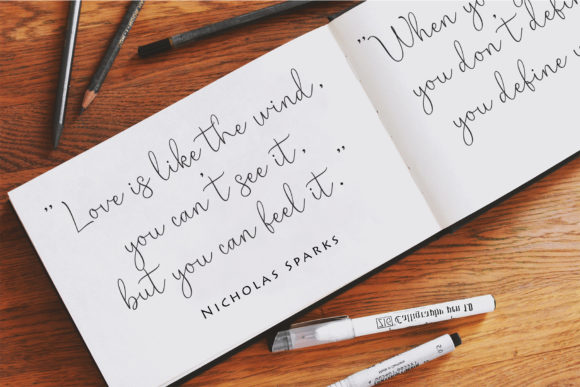 "Love is like the wind,
you can't see it,
but you can feel it."
NICHOLAS SPARKS
"When you
you don't define
you define
Calligraphy pen 1.0